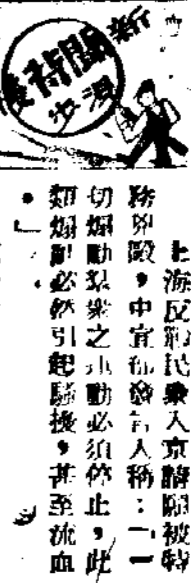 新聞待漫步
上海反飢民衆入京請願被特
務毆，中宣部發言人稱：「一
切煽動羣衆之行動必須停止，此
類煽動必然引起騷擾，甚至流血
。」